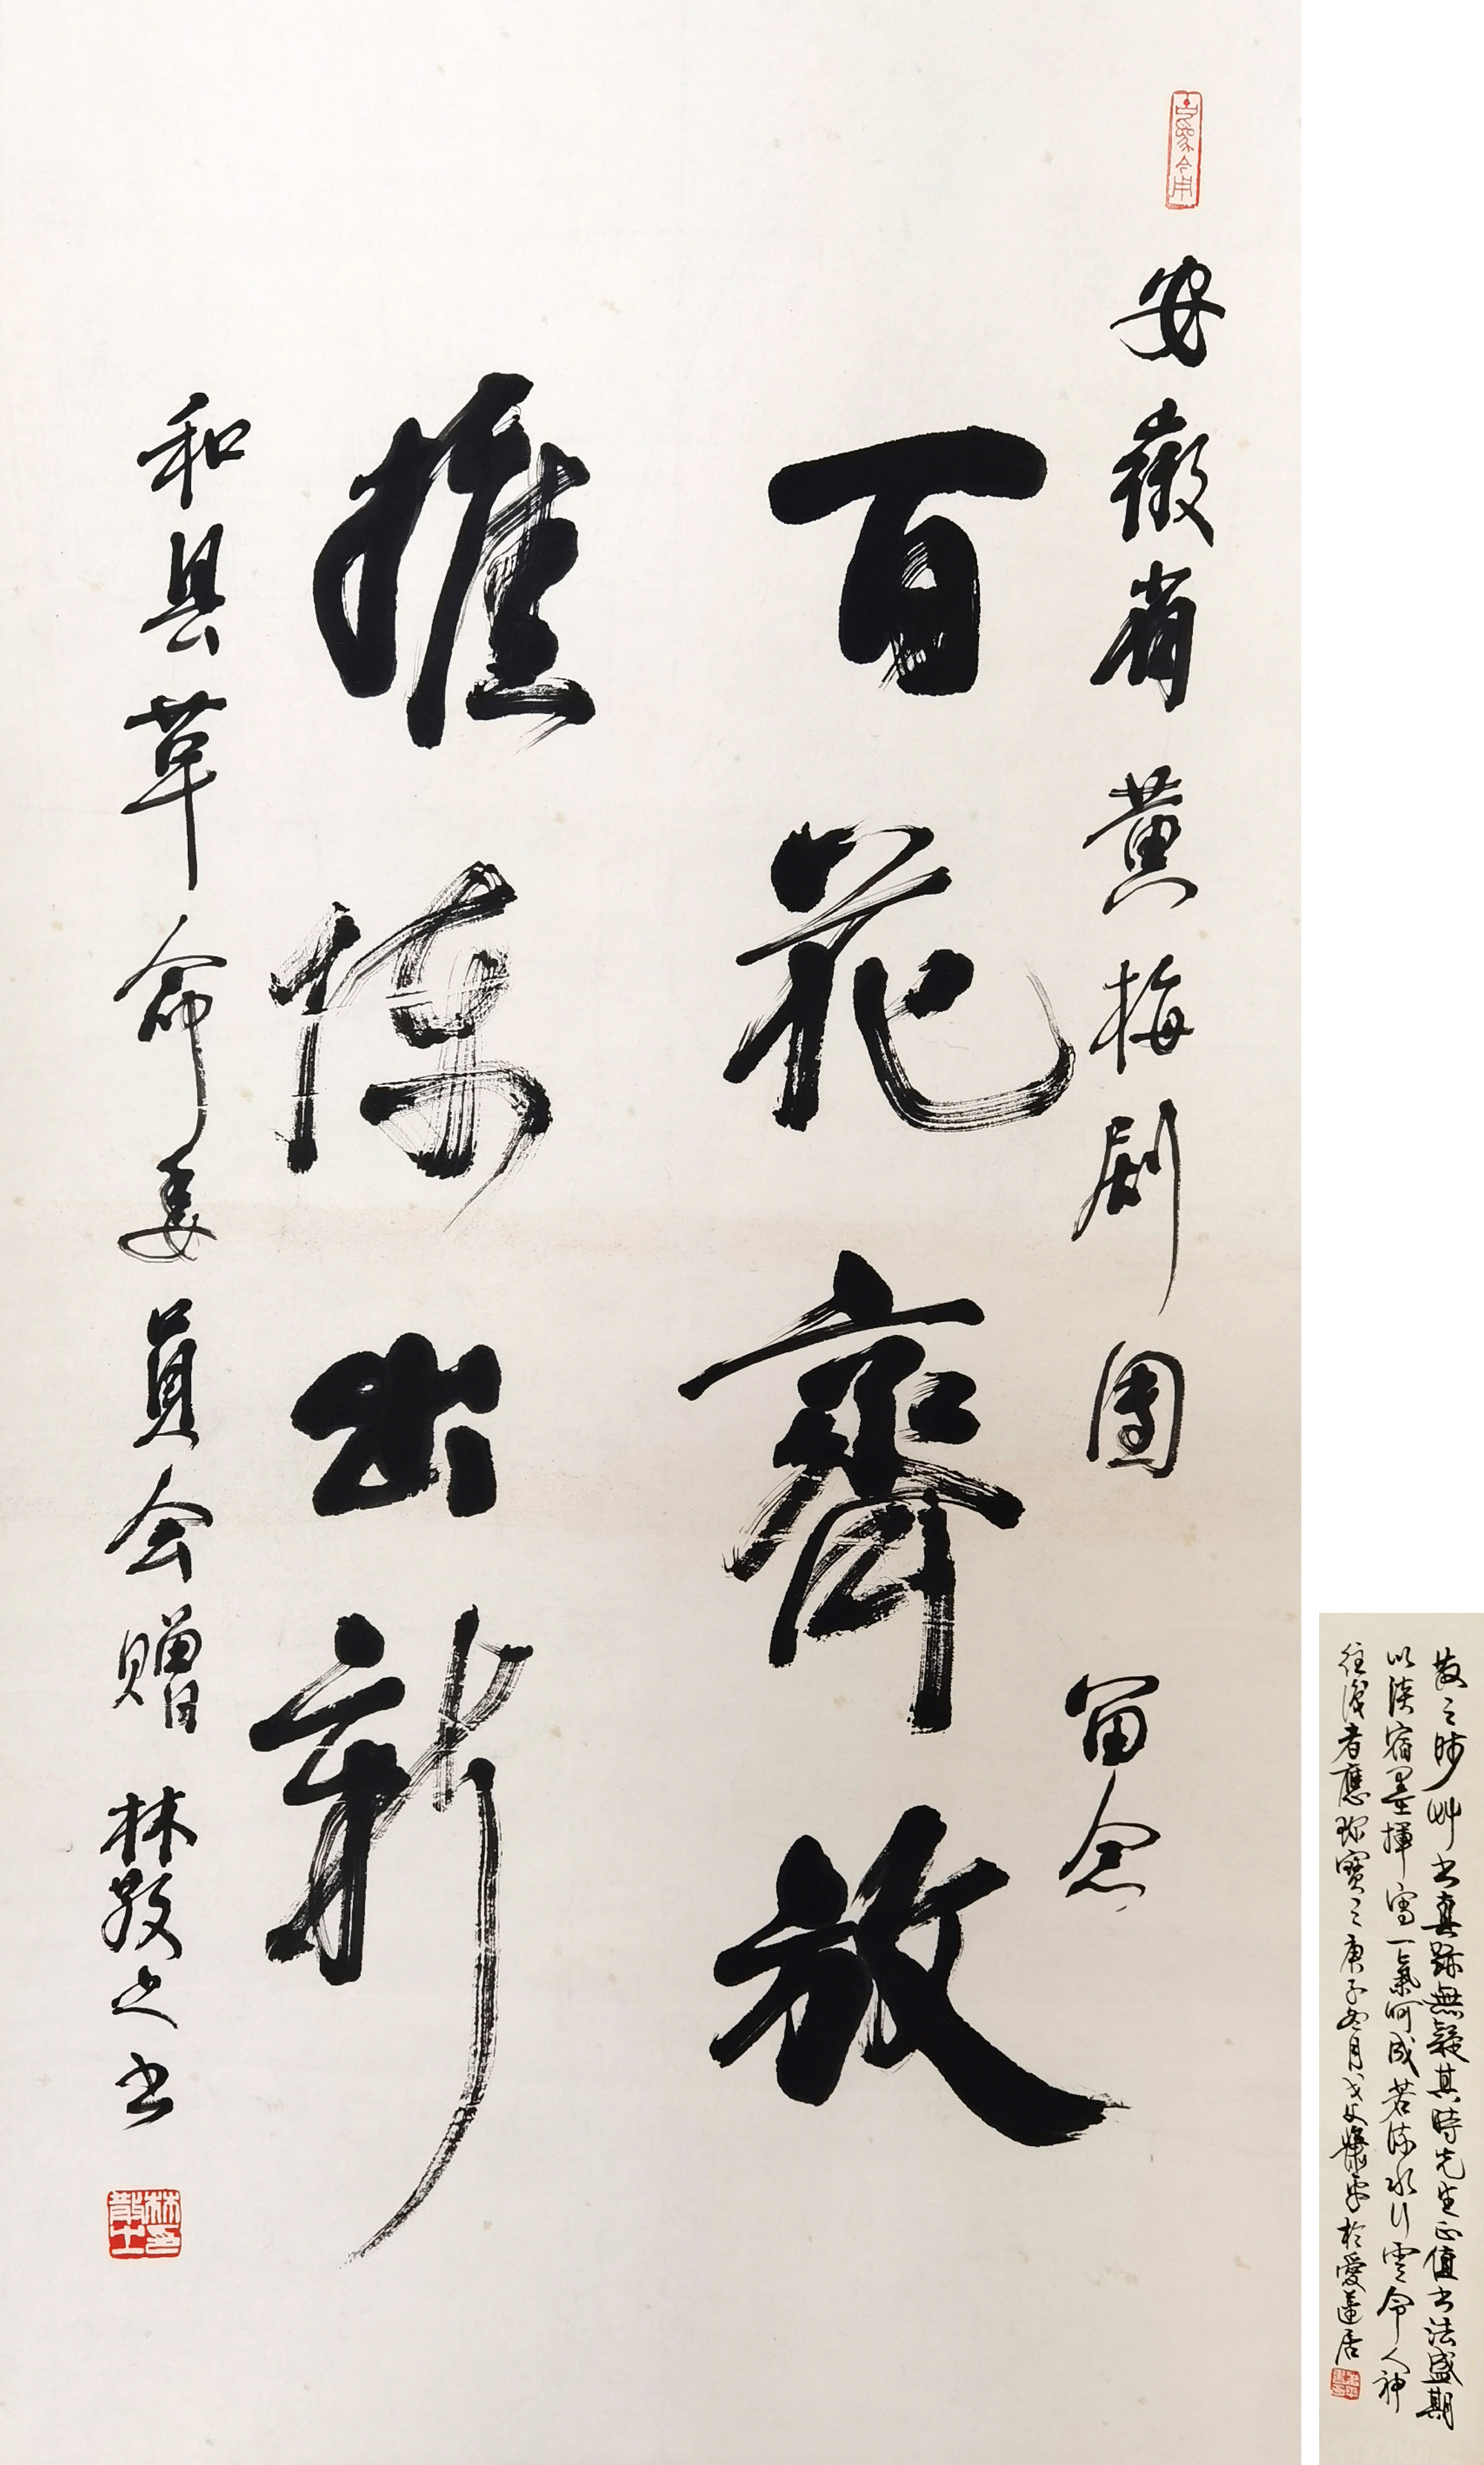 安徽省黄梅剧团 留念
百花齊放
推陈出新
和县革命委员会赠 林散之书
林散之印
散之師艸书真跡無疑其時先生正值书法盛期
以淡宿墨揮寫一氣呵成若流水行雲令人神
往後者應珍寶之庚子冬月
於愛蓮居